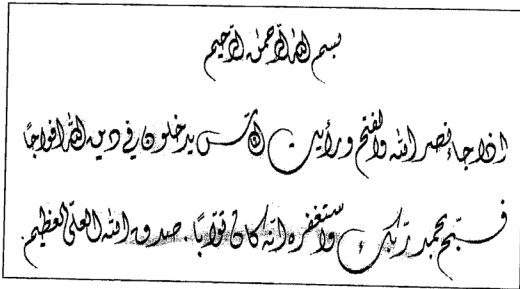 بسم الله الرحمن الرحيم
إذا جاء نصر الله والفتح ورأيت الناس يدخلون في دين الله افواجًا
فسبّح بحمد ربّك واستغفره انّه كان توّابًا. صدق الله العليّ العظيم.